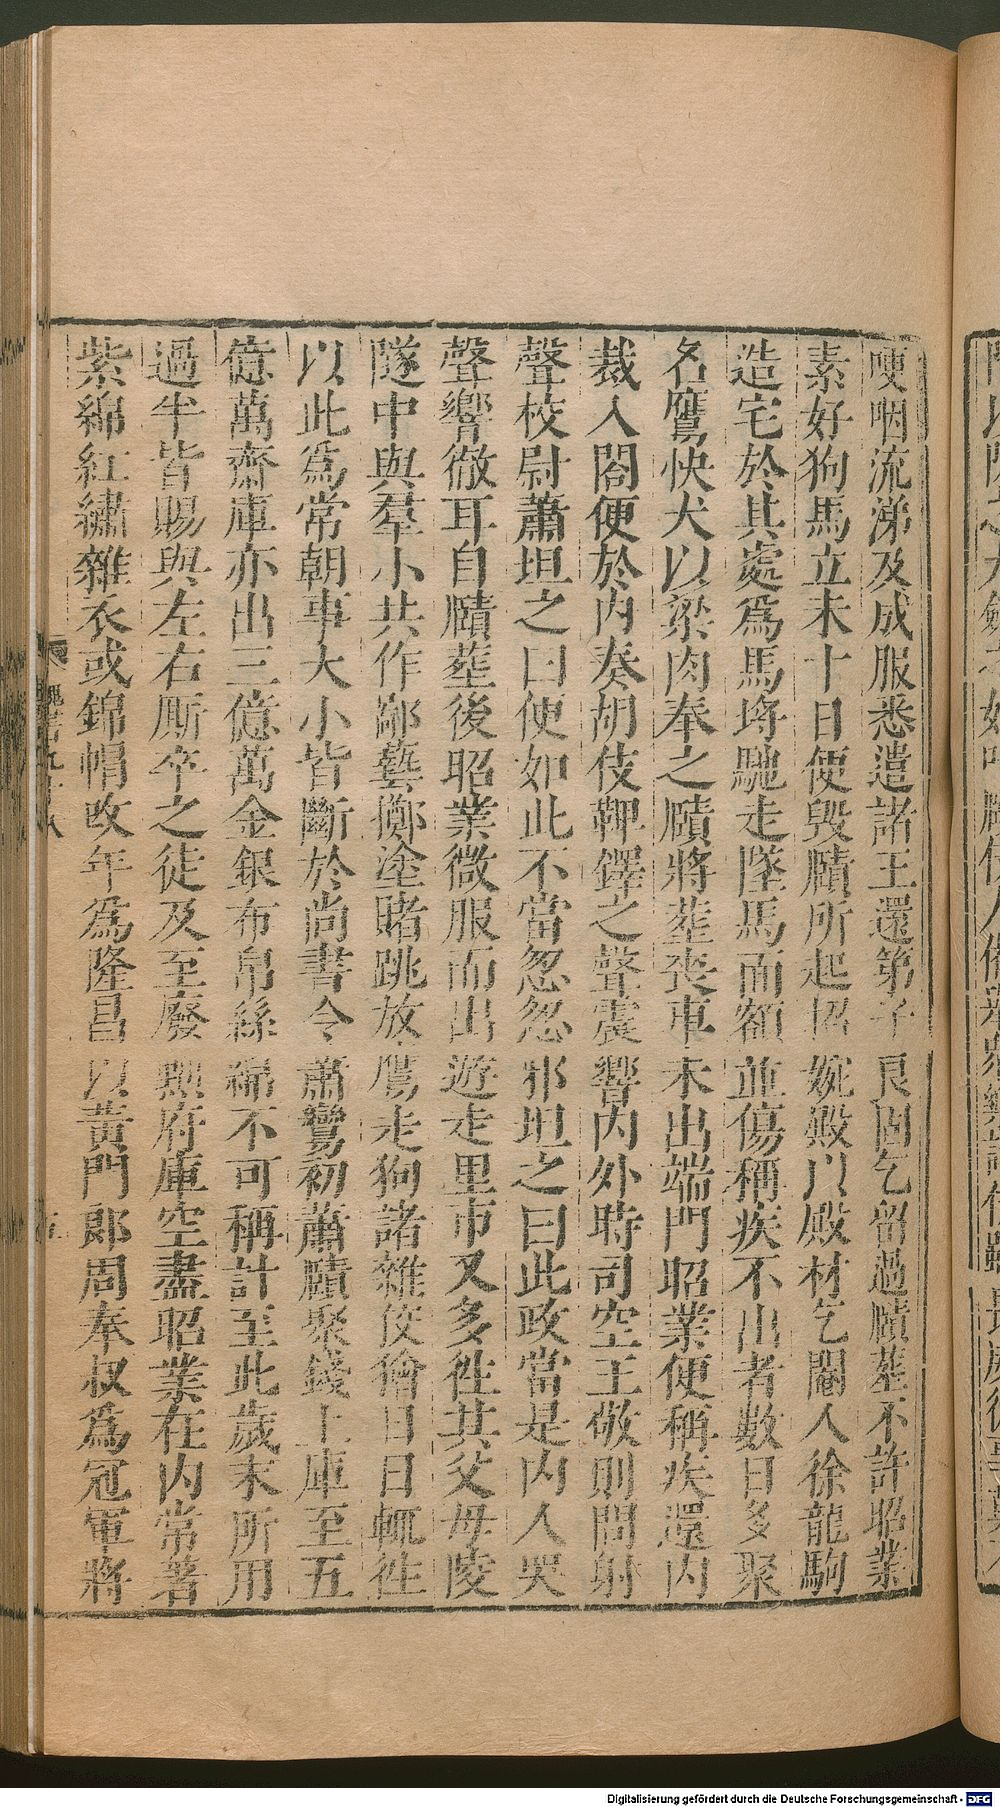 哽咽流涕及成服悉遣諸王還第子良固乞留過賾葬不許昭業
素好狗馬立未十日便毀賾所起招婉殿以殿材乞閹人徐龍駒
造宅於其處為馬埒馳走墜馬面額並傷稱疾不出者數日多聚
名鷹快犬以梁肉奉之賾將葬喪車未出端門昭業便稱疾還内
裁入閤便於内奏胡伎鞞鐸之聲震響内外時司空王敬則問射
聲校尉蕭坦之曰便如此不當怱怱邪坦之曰此政當是内人哭
聲響徹耳自賾葬後昭業微服而出遊走里市又多往其父母陵
隧中與羣小共作鄙藝擲塗賭跳放鷹走狗諸雜狡獪日日輒往
以此為常朝事大小皆斷於尚書令蕭鸞初蕭賾聚錢上庫至五
億萬齋庫亦出三億萬金銀布帛絲綿不可稱計至此歲末所用
過半皆賜與左右厮卒之徒及至廢黜府庫空盡昭業在内常著
紫綿紅繡雜衣或錦帽改年為隆昌以黃門郎周奉叔為冠軍將
魏書九十八
Digitalisierung gefördert durch die Deutsche Forschungsgemeinschaft - DFG